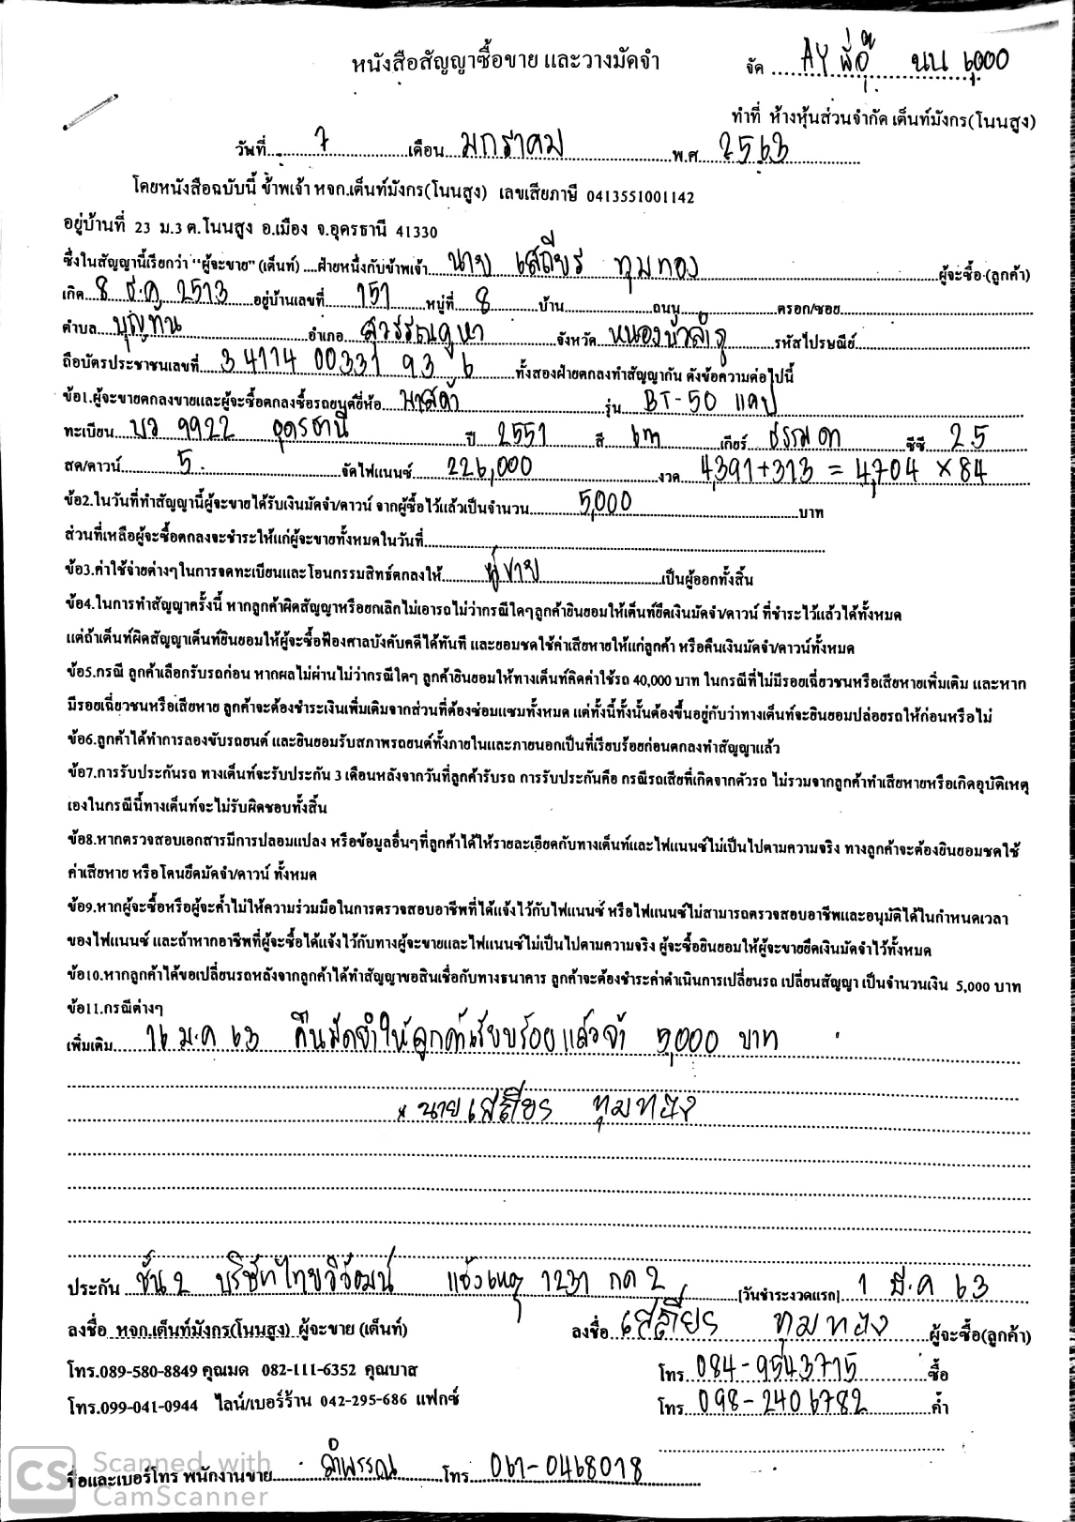 หนังสือสัญญาซื้อขาย และวางมัดจำ
จัด AY พี่อู๊ นน 6,000
ทำที่ ห้างหุ้นส่วนจำกัด เต็นท์มังกร(โนนสูง)
วันที่ 7 เดือน มกราคม พ.ศ 2563
โดยหนังสือฉบับนี้ ข้าพเจ้า หจก.เต็นท์มังกร(โนนสูง) เลขเสียภาษี 0413551001142
อยู่บ้านที่ 23 ม.3 ต.โนนสูง อ.เมือง จ.อุดรธานี 41330
ซึ่งในสัญญานี้เรียกว่า "ผู้จะขาย" (เต็นท์) ....ฝ่ายหนึ่งกับข้าพเจ้า นาย เสถียร ทุมทอง ผู้จะซื้อ (ลูกค้า)
เกิด 8 ธ.ค 2513 อยู่บ้านเลขที่ 151 หมู่ที่ 8 บ้าน ถนน ตรอก/ซอย
ตำบล บุญทัน อำเภอ สุวรรณคูหา จังหวัด หนองบัวลำภู รหัสไปรษณีย์
ถือบัตรประชาชนเลขที่ 3 4114 00331 93 6 ทั้งสองฝ่ายตกลงทำสัญญากัน ดังข้อความต่อไปนี้
ข้อ1.ผู้จะขายตกลงขายและผู้จะซื้อตกลงซื้อรถยนต์ยี่ห้อ มาสด้า รุ่น BT-50 แคป
ทะเบียน บว 9922 อุดรธานี ปี 2551 สี เทา เกียร์ ธรรมดา ซีซี 25
สด/ดาวน์ 5. จัดไฟแนนซ์ 226,000 งวด 4,391+313 = 4,704 × 84
ข้อ2.ในวันที่ทำสัญญานี้ผู้จะขายได้รับเงินมัดจำ/ดาวน์ จากผู้ซื้อไว้แล้วเป็นจำนวน 5,000 บาท
ส่วนที่เหลือผู้จะซื้อตกลงจะชำระให้แก่ผู้จะขายทั้งหมดในวันที่
ข้อ3.ค่าใช้จ่ายต่างๆในการจดทะเบียนและโอนกรรมสิทธ์ตกลงให้ ผู้ขาย เป็นผู้ออกทั้งสิ้น
ข้อ4.ในการทำสัญญาครั้งนี้ หากลูกค้าผิดสัญญาหรือยกเลิกไม่เอารถไม่ว่ากรณีใดๆลูกค้ายินยอมให้เต็นท์ยึดเงินมัดจำ/ดาวน์ ที่ชำระไว้แล้วได้ทั้งหมด
แต่ถ้าเต็นท์ผิดสัญญาเต็นท์ยินยอมให้ผู้จะซื้อฟ้องศาลบังคับคดีได้ทันที และยอมชดใช้ค่าเสียหายให้แก่ลูกค้า หรือคืนเงินมัดจำ/ดาวน์ทั้งหมด
ข้อ5.กรณี ลูกค้าเลือกรับรถก่อน หากผลไม่ผ่านไม่ว่ากรณีใดๆ ลูกค้ายินยอมให้ทางเต็นท์คิดค่าใช้รถ 40,000 บาท ในกรณีที่ไม่มีรอยเฉี่ยวชนหรือเสียหายเพิ่มเติม และหาก
มีรอยเฉี่ยวชนหรือเสียหาย ลูกค้าจะต้องชำระเงินเพิ่มเติมจากส่วนที่ต้องซ่อมแซมทั้งหมด แต่ทั้งนี้ทั้งนั้นต้องขึ้นอยู่กับว่าทางเต็นท์จะยินยอมปล่อยรถให้ก่อนหรือไม่
ข้อ6.ลูกค้าได้ทำการลองขับรถยนต์ และยินยอมรับสภาพรถยนต์ทั้งภายในและภายนอกเป็นที่เรียบร้อยก่อนตกลงทำสัญญาแล้ว
ข้อ7.การรับประกันรถ ทางเต็นท์จะรับประกัน 3 เดือนหลังจากวันที่ลูกค้ารับรถ การรับประกันคือ กรณีรถเสียที่เกิดจากตัวรถ ไม่รวมจากลูกค้าทำเสียหายหรือเกิดอุบัติเหตุ
เองในกรณีนี้ทางเต็นท์จะไม่รับผิดชอบทั้งสิ้น
ข้อ8.หากตรวจสอบเอกสารมีการปลอมแปลง หรือข้อมูลอื่นๆที่ลูกค้าได้ให้รายละเอียดกับทางเต็นท์และไฟแนนซ์ไม่เป็นไปตามความจริง ทางลูกค้าจะต้องยินยอมชดใช้
ค่าเสียหาย หรือโดนยึดมัดจำ/ดาวน์ ทั้งหมด
ข้อ9.หากผู้จะซื้อหรือผู้จะค้ำไม่ให้ความร่วมมือในการตรวจสอบอาชีพที่ได้แจ้งไว้กับไฟแนนซ์ หรือไฟแนนซ์ไม่สามารถตรวจสอบอาชีพและอนุมัติได้ในกำหนดเวลา
ของไฟแนนซ์ และถ้าหากอาชีพที่ผู้จะซื้อได้แจ้งไว้กับทางผู้จะขายและไฟแนนซ์ไม่เป็นไปตามความจริง ผู้จะซื้อยินยอมให้ผู้จะขายยึดเงินมัดจำไว้ทั้งหมด
ข้อ10.หากลูกค้าได้ขอเปลี่ยนรถหลังจากลูกค้าได้ทำสัญญาขอสินเชื่อกับทางธนาคาร ลูกค้าจะต้องชำระค่าดำเนินการเปลี่ยนรถ เปลี่ยนสัญญา เป็นจำนวนเงิน 5,000 บาท
ข้อ11.กรณีต่างๆ
เพิ่มเติม 16 ม.ค 63 คืนมัดจำให้ลูกค้าเรียบร้อยแล้วจ้า 5,000 บาท
× นายเสถียร ทุมทอง
ประกัน ชั้น 2 บริษัทไทยวิวัฒน์ แจ้งเหตุ 1231 กด 2 [วันชำระงวดแรก] 1 มี.ค 63
ลงชื่อ หจก.เต็นท์มังกร(โนนสูง) ผู้จะขาย (เต็นท์) ลงชื่อ เสถียร ทุมทอง ผู้จะซื้อ(ลูกค้า)
โทร.089-580-8849 คุณมด 082-111-6352 คุณบาส โทร 084-9543715 ซื้อ
โทร.099-041-0944 ไลน์/เบอร์ร้าน 042-295-686 แฟกซ์ โทร 098-2406782 ค้ำ
ชื่อและเบอร์โทร พนักงานขาย ลำพรรณ โทร 061-0468018
CS Scanned with
CamScanner